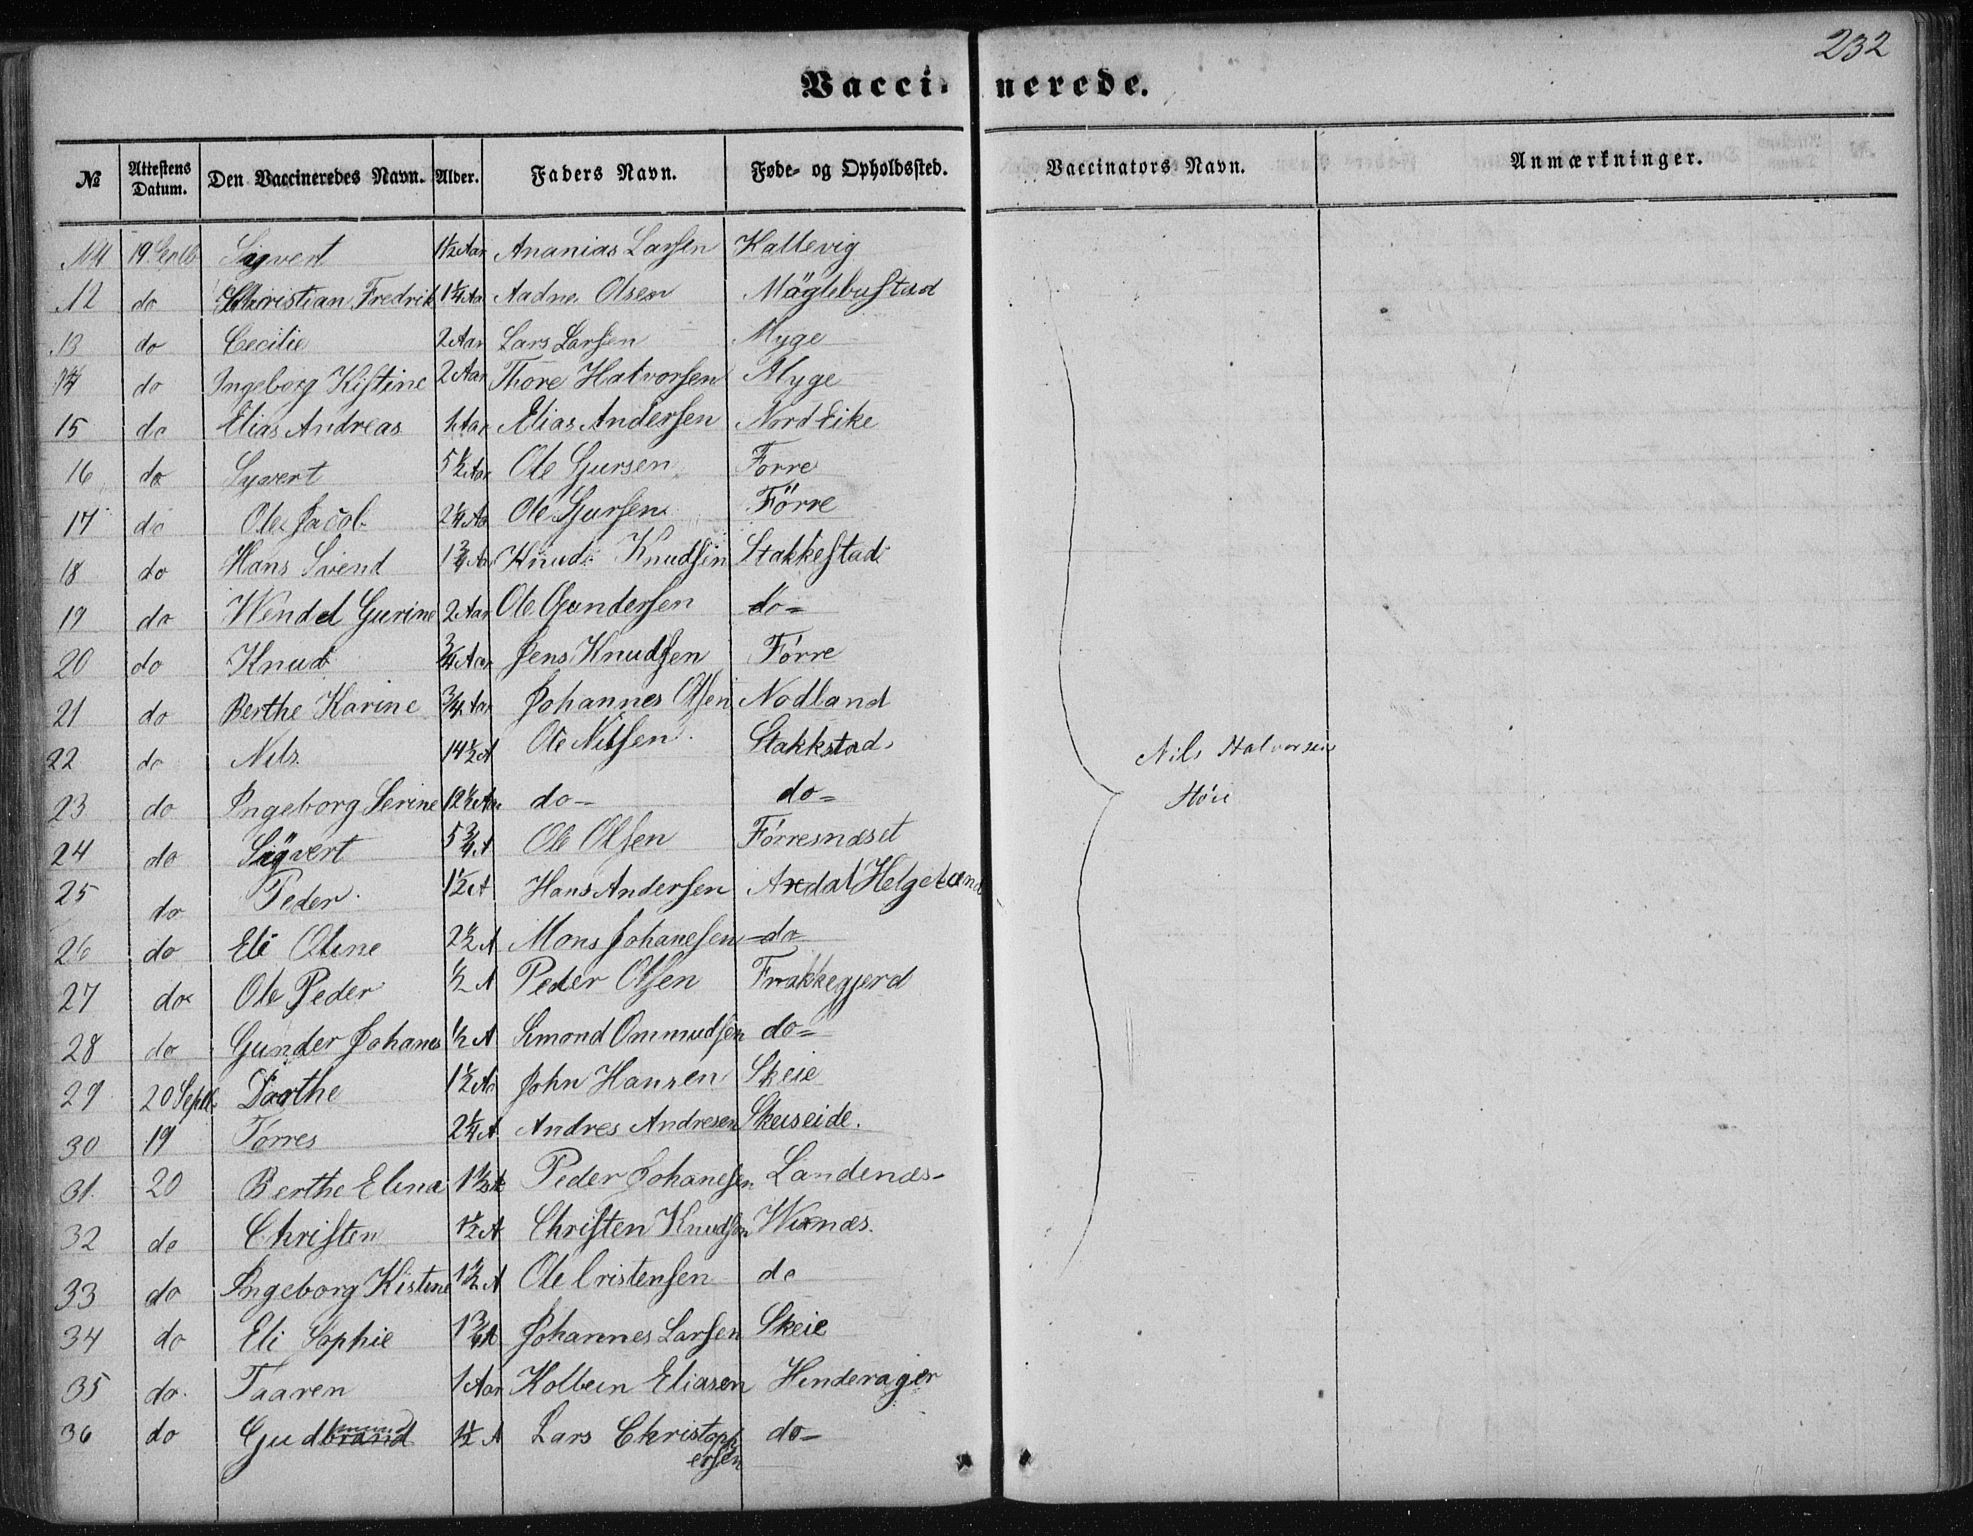 232
Vaccinerede.
№ | Attestens Datum. | Den Vaccineredes Navn. | Alder. | Faders Navn. | Føde- og Opholdssted. | Vaccinators Navn. | Anmærkninger.
11 | 19 Septb | Sigvert | 1½ Aar | Ananias Larsen | Hattevig
12 | do | Christian Fredrik | 1¼ Aar | Aadne Olsen | Mäglebustad
13 | do | Cecilie | 2 Aar | Lars Larsen | Myge
14 | do | Ingeborg Kistine | 2 Aar | Thore Halvorsen | Myge
15 | do | Elias Andreas | 1 Aar | Elias Andersen | Nord Eike
16 | do | Syvert | 5½ Aar | Ole Gjursen | Forre
17 | do | Ole Jacob | 2¼ Aa | Ole Gjursen | Förre
18 | do | Hans Svend | 1¾ Aar | Knud Knudsen | Stakkestad
19 | do | Wendel Gurine | 2 Aar | Ole Gundersen | do=
20 | do | Knud | ¾ Aar | Jens Knudsen | Førre
21 | do | Berthe Karine | ¾ Aar | Johannes Olsen | Nodland
22 | do | Nils | 14½ A | Ole Nilsen | Stakkstad
Nils Halvorsen
23 | do | Ingeborg Serine | 12½ Aar | do- | do=
Höie
24 | do | Sigvert | 5¾ A | Ole Olsen | Førresnæset
25 | do | Peder | 1½ A | Hans Andersen | Aredal Helgeland
26 | do | Eli Oline | 2½ A | Mons Johanesen | do
27 | do | Ole Peder | ½ A | Peder Olsen | Frakkegjerd
28 | do | Gunder Johanes | ½ A | Simond Ommudsen | do=
29 | 20 Septb. | Dorthe | 1½ Aa | John Hansen | Skeie
30 | 19 | Tørres | 2¼ A | Andres Andresen | Skeiseide.
31 | 20 | Berthe Elena | 1½ A | Peder Johanesen | Landenæs-
32 | do | Christen | 1½ A | Christen Knudsen | Wixnæs.
33 | do | Ingeborg Kistene | 1½ A | Ole Cristensen | do
34 | do | Eli Sophie | 1¾ A | Johannes Larsen | Skeie
35 | do | Taaren | 1 Aar | Kolbein Eliasen | Hinderager
36 | do | Gudbrand | 1½ A | Lars Christoph | do-
ersen